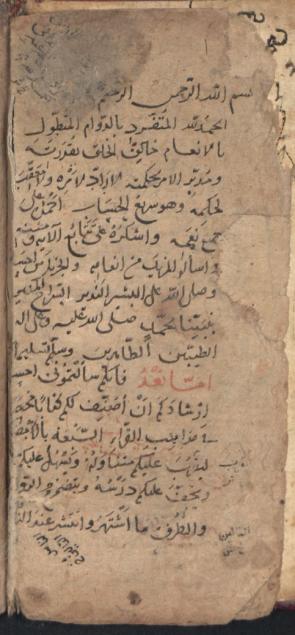 بسم الله الرحمن الرحيم
الحمد لله المتفرد بالدوام المتطول
بالانعام خالق الخلق بقدرته
ومدبر الامر بحكمته لا راد لامره ولا معقب
لحكمه وهو سريع الحساب احمده على
جميع نعمه واشكره على تتابع
واسأله المزيد من انعامه والجزيل من
وصلى الله على البشير النذير السراج المنير
نبينا محمد صلى الله عليه وعلى اله
الطيبين الطاهرين وسلم تسليما
اما بعد فانكم سألتموني احسن
ارشادكم ان اصنف لكم كتابا
في مذاهب القراء السبعة بالامصار
ليقرب عليكم متناوله ويسهل عليكم
ويخف عليكم درسه ويتضمن
والطرق ما اشتهر وانتشر عند